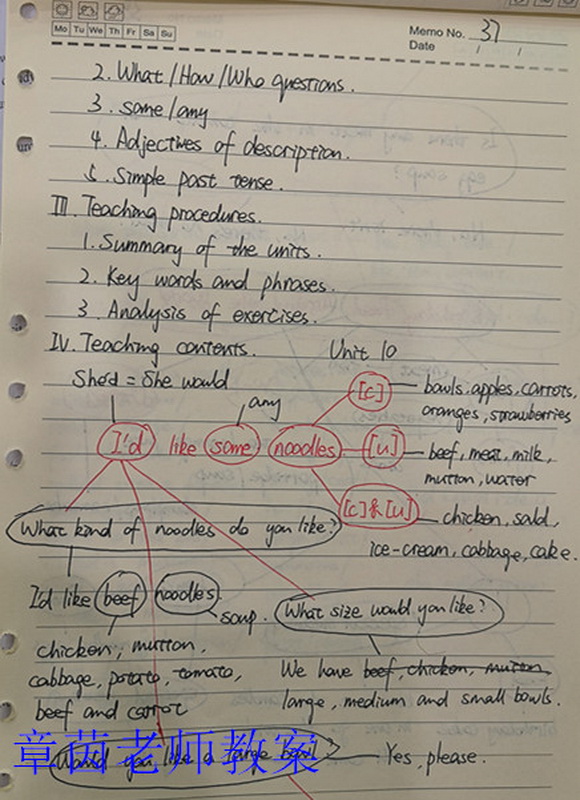 Mo Tu We Th Fr Sa Su
Memo No. 37
Date / /
2. What/How/Who questions.
3. some/any
4. Adjectives of description.
5. Simple past tense.
III. Teaching procedures.
1. Summary of the units.
2. Key words and phrases.
3. Analysis of exercises.
IV. Teaching contents. Unit 10
She'd = She would
any
[c] bowls. apples, carrots,
oranges, strawberries
I'd like some noodles [u] beef, meat, milk,
mutton, water
[c]&[u] chicken, salad,
ice-cream, cabbage, cake.
What kind of noodles do you like?
I'd like beef noodles.
soup.
What size would you like?
chicken, mutton,
cabbage, potato, tomato,
beef and carrot
We have beef, chicken, mutton
large, medium and small bowls.
Would you like a large bowl? Yes, please.
章茵老师教案